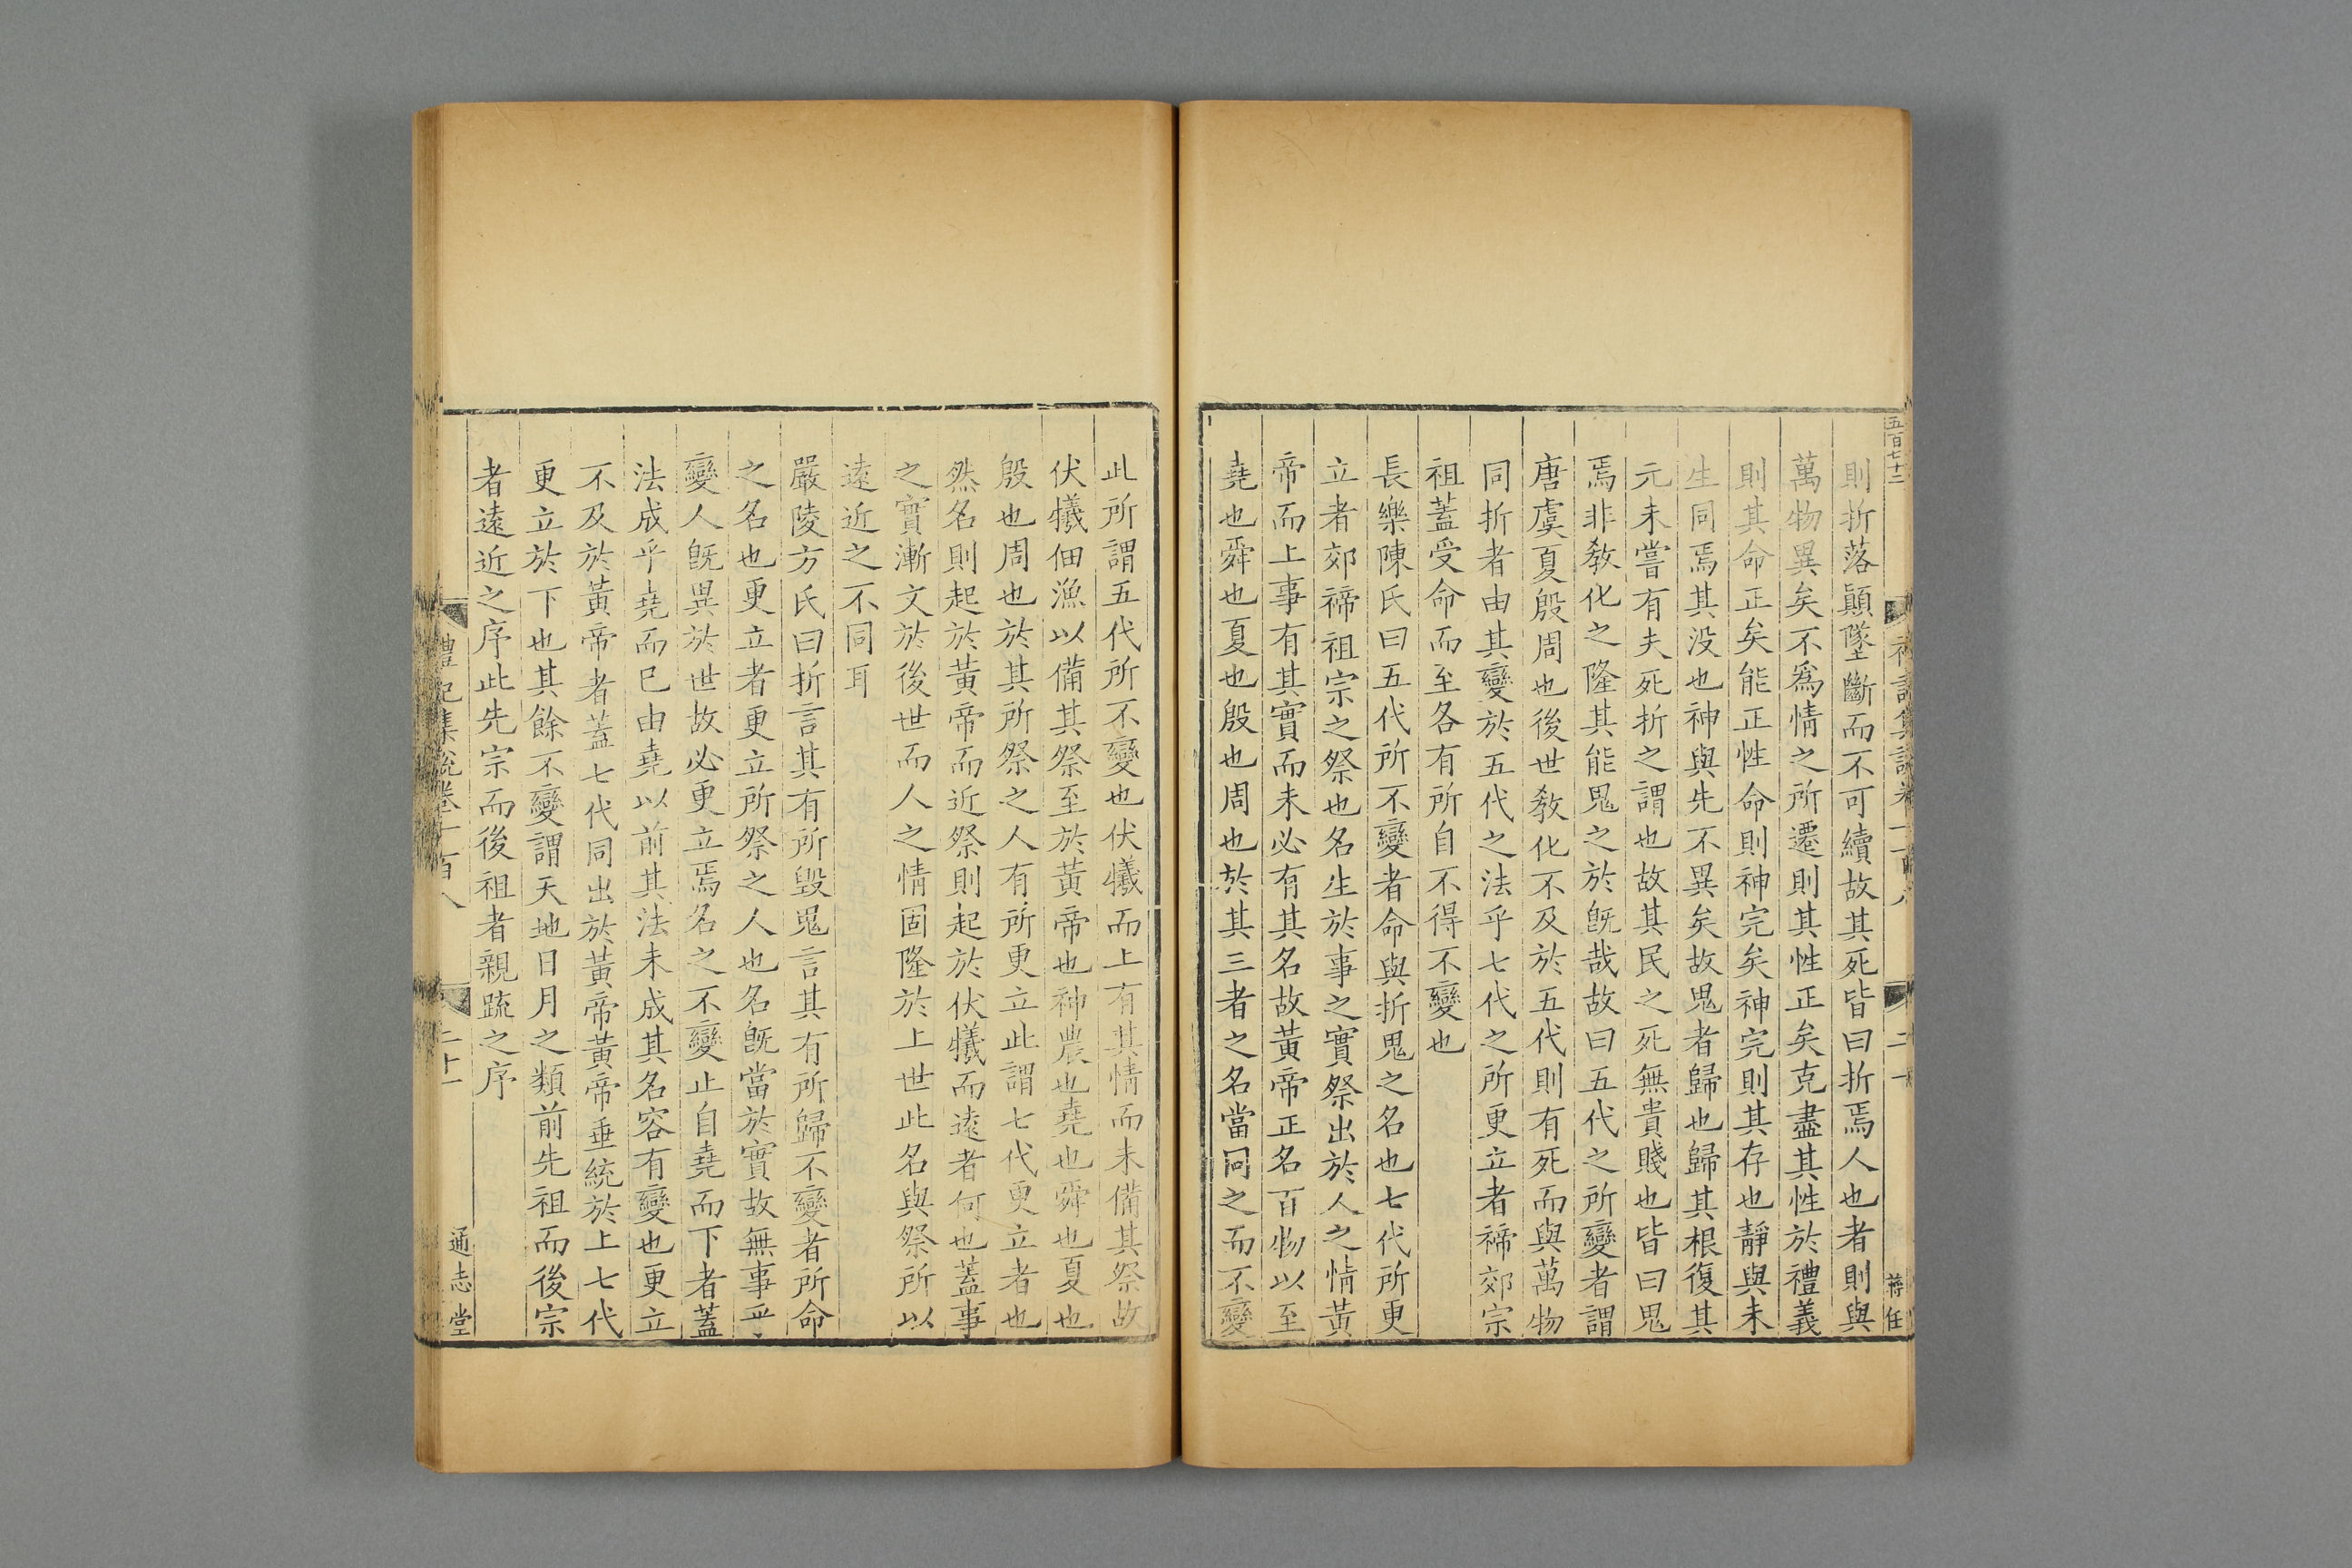 五百七十三
蔣任
則折落顚墜斷而不可續故其死皆曰折焉人也者則與
萬物異矣不爲情之所遷則其性正矣克盡其性於禮義
則其命正矣能正性命則神完矣神完則其存也靜與未
生同焉其没也神與先不異矣故鬼者歸也歸其根復其
元未嘗有夫死折之謂也故其民之死無貴賤也皆曰鬼
焉非敎化之隆其能鬼之於旣哉故曰五代之所變者謂
唐虞夏殷周也後世敎化不及於五代則有死而與萬物
同折者由其變於五代之法乎七代之所更立者禘郊宗
祖蓋受命而至各有所自不得不變也
長樂陳氏曰五代所不變者命與折鬼之名也七代所更
立者郊禘祖宗之祭也名生於事之實祭出於人之情黃
帝而上事有其實而未必有其名故黃帝正名百物以至
堯也舜也夏也殷也周也於其三者之名當同之而不變
此所謂五代所不變也伏犧而上有其情而未備其祭故
伏犧佃漁以備其祭至於黃帝也神農也堯也舜也夏也
殷也周也於其所祭之人有所更立此謂七代更立者也
然名則起於黃帝而近祭則起於伏犧而遠者何也蓋事
之實漸文於後世而人之情固隆於上世此名與祭所以
遠近之不同耳
嚴陵方氏曰折言其有所毁鬼言其有所歸不變者所命
之名也更立者更立所祭之人也名旣當於實故無事乎
變人旣異於世故必更立焉名之不變止自堯而下者蓋
法成乎堯而已由堯以前其法未成其名容有變也更立
不及於黃帝者蓋七代同出於黃帝黃帝垂統於上七代
更立於下也其餘不變謂天地日月之類前先祖而後宗
者遠近之序此先宗而後祖者親疏之序
禮記集說卷一百八
二十一
通志堂